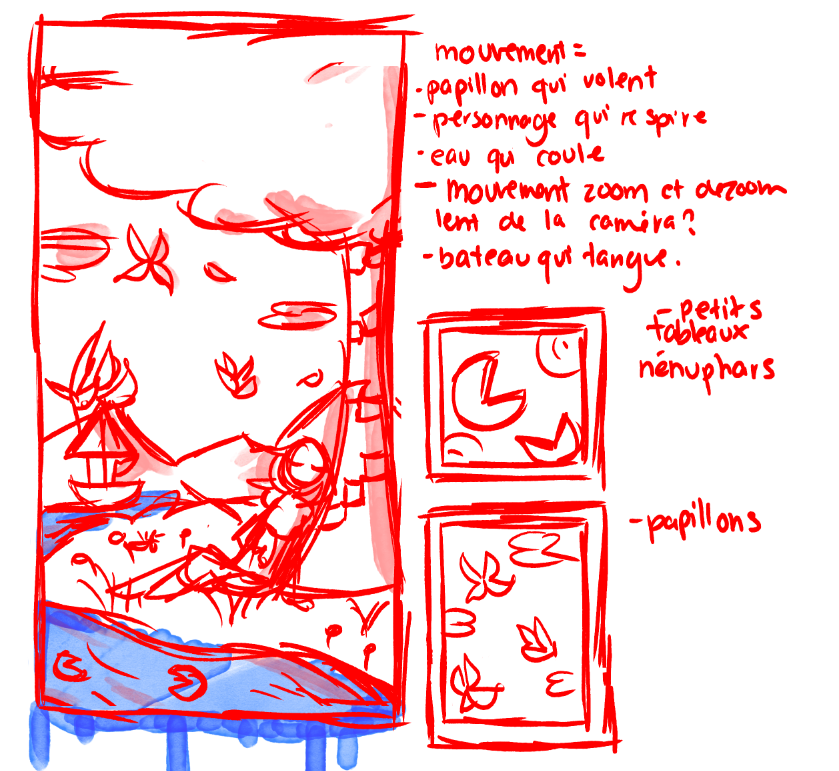 mouvement =
- papillon qui volent
- personnage qui respire
- eau qu coule
- mouvement zoom et dezoom
lent de la caméra?
- bateau qui tangue.
- petits
tableaux
nénuphars
- papillons